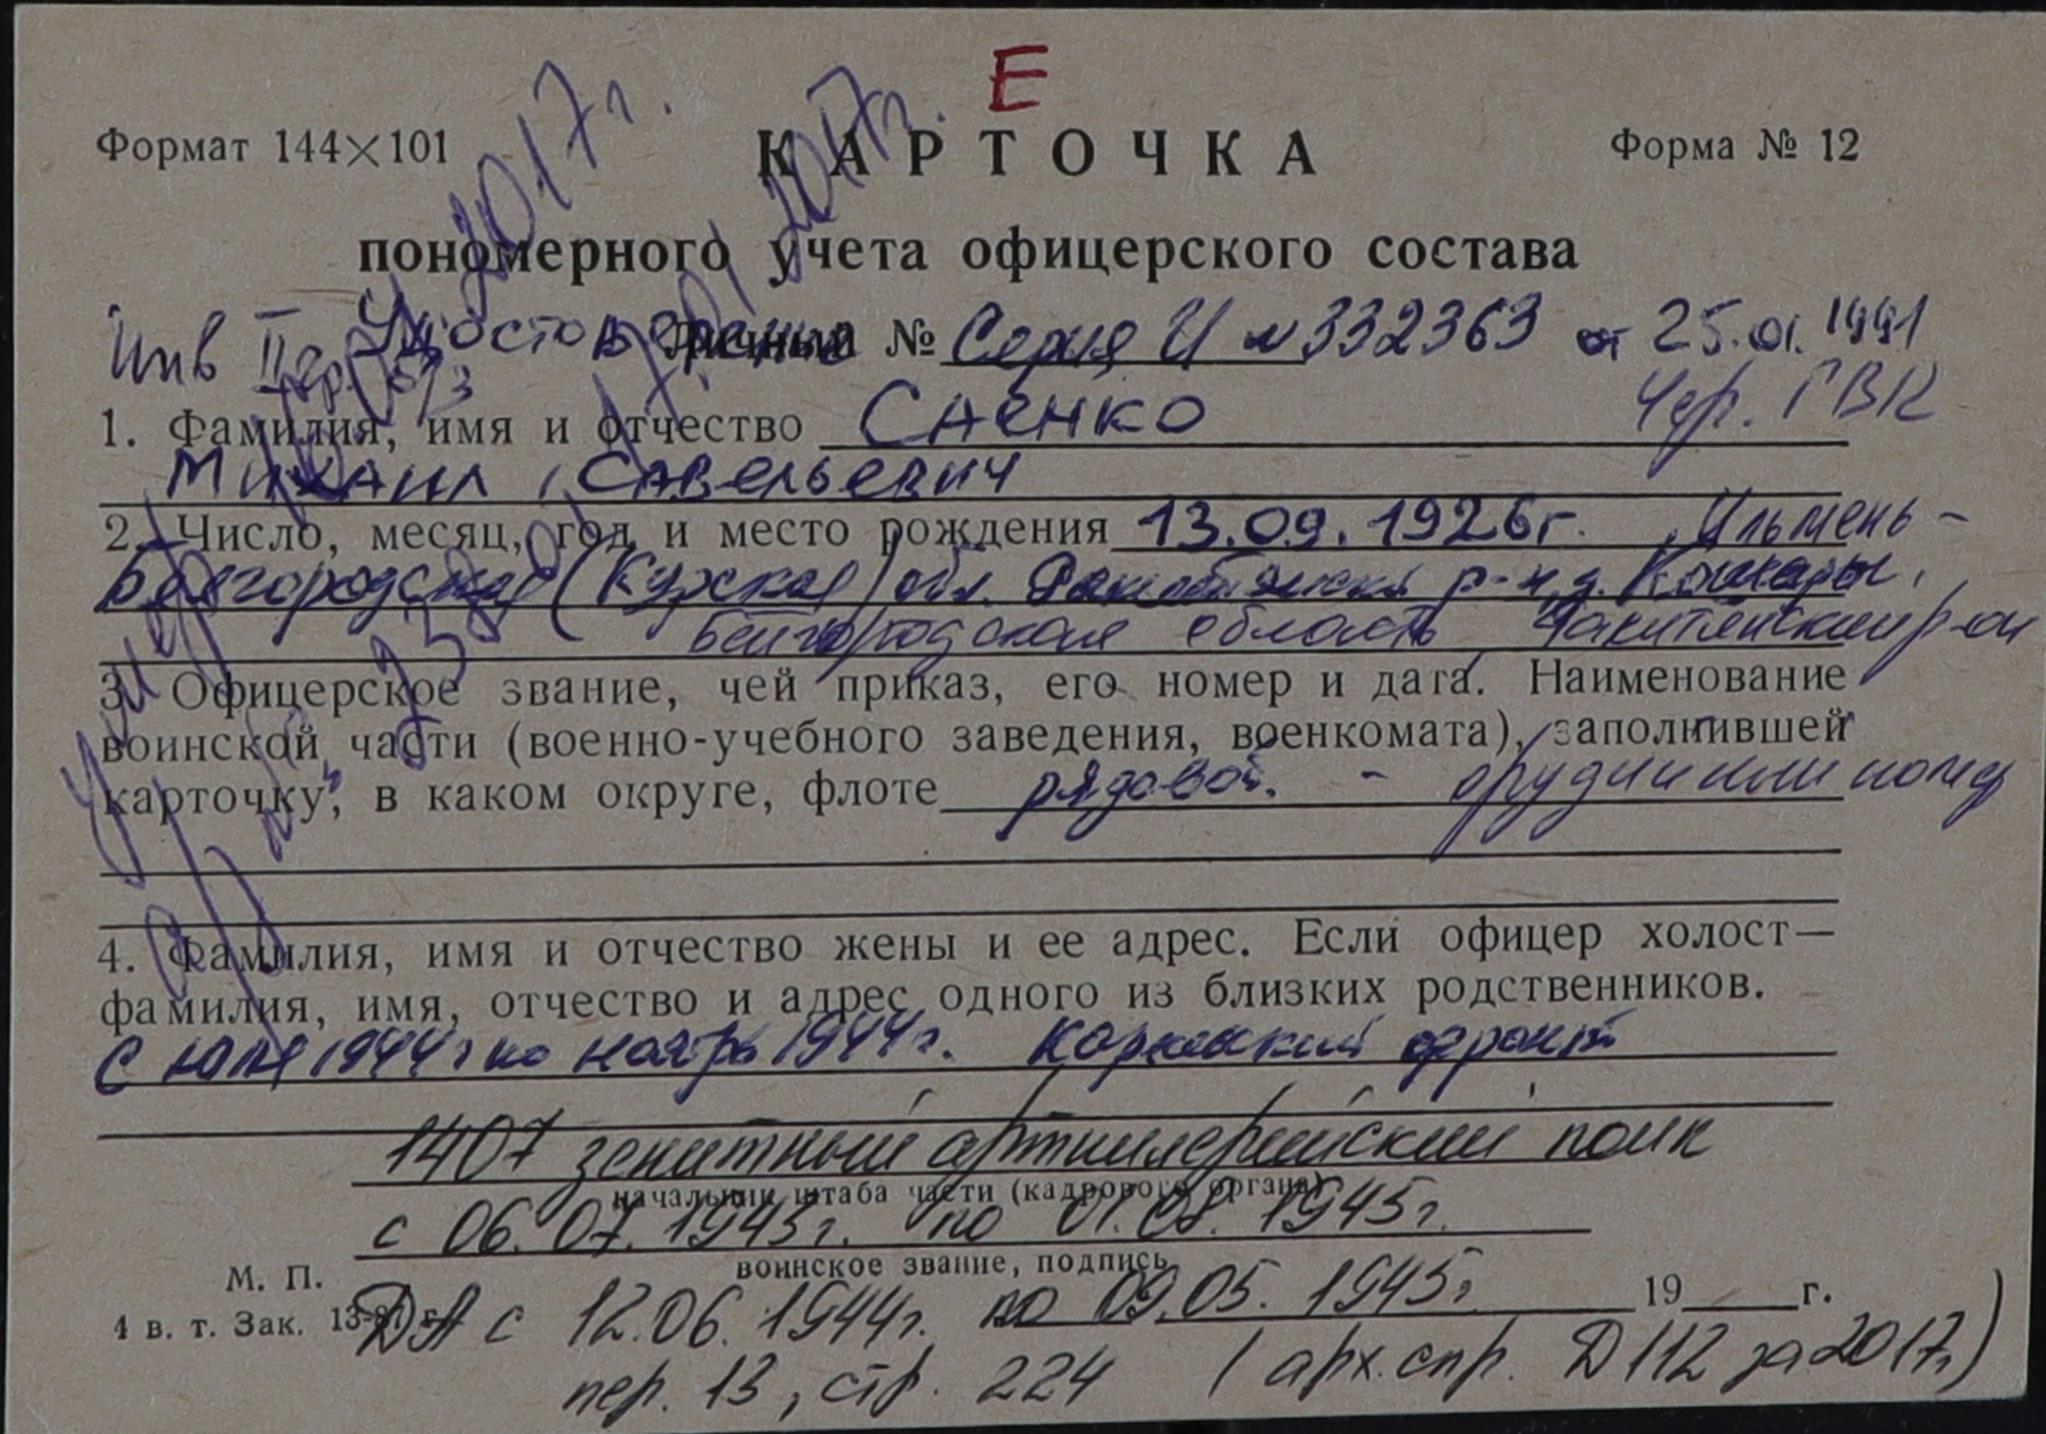 Е
Формат 144×101
КАРТОЧКА
Форма № 12
пономерного учета офицерского состава
Инв II гр. Удостоверение
Личный № Серия И № 332363 от 25.01.1991
1. Фамилия, имя и отчество Саенко
Чер. ГВК
Михаил Савельевич
2. Число, месяц, год и место рождения 13.09.1926г. Ильмень-
Белгородская (Курская) обл. р-н, д. Кошары,
Белгородская область Ракитянский р-он
3. Офицерское звание, чей приказ, его номер и дата. Наименование
воинской части (военно-учебного заведения, военкомата), заполнившей
карточку, в каком округе, флоте рядовой. - орудийный номер
4. Фамилия, имя и отчество жены и ее адрес. Если офицер холост—
фамилия, имя, отчество и адрес одного из близких родственников.
С июня 1944г по ноябрь 1944г. Карельский фронт
1407 зенитный артиллерийский полк
начальник штаба части (кадрового органа)
с 06.07.1943г. по 01.08.1945г.
воинское звание, подпись
М. П.
ДА с 12.06.1944г. по 09.05.1945г
19 г.
4 в. т. Зак.
пер. 13, стр. 224 (арх. спр. Д112 за 2017г)
Умер
2017г.
2017г.